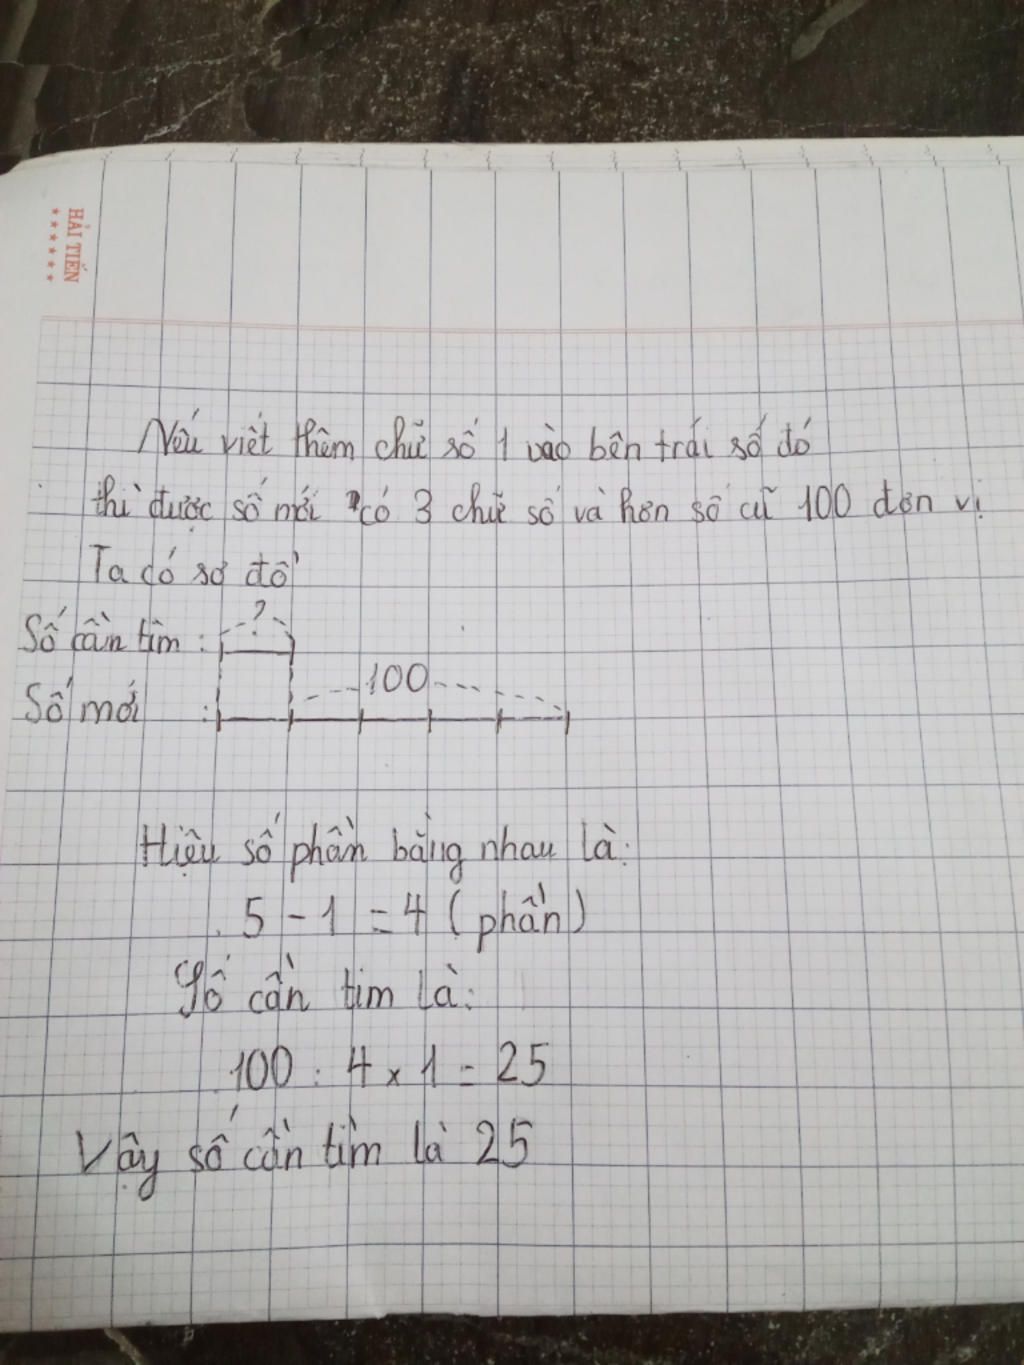 HẢI TIẾN
Nếu viết thêm chữ số 1 vào bên trái số đó
thì được số mới có 3 chữ số và hơn số cũ 100 đơn vị
Ta có sơ đồ
?
Số cần tìm :
100
Số mới :
Hiệu số phần bằng nhau là:
5 - 1 = 4 (phần)
Số cần tìm là:
100 : 4 x 1 = 25
Vậy số cần tìm là 25